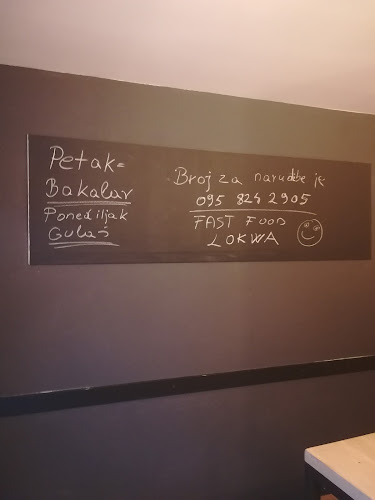 Petak=
Bakalar
Ponediljak
Gulaš
Broj za narudžbe je
095 824 2905
FAST FOOD
LOKWA